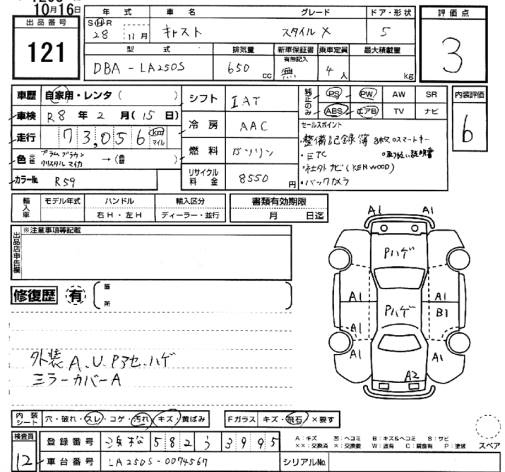 10月16日
出品番号
121
年式 車名 グレード ドア・形状
S H R 28年 11月 キャスト スタイル X 5
型式 排気量 新車保証書 乗車定員 最大積載量
有無記入
DBA-LA250S 650cc 無 4人 kg
評価点
3
内装評価
6
車歴 自家用・レンタ( )
車検 R8年2月(15日)
走行 73,056 km マイル
色 →(色)
カラーNo. R59
シフト IAT
冷房 AAC
燃料 ガソリン
リサイクル料金 8550円
純正のみ PS PW AW SR
ABS エアB TV ナビ
セールスポイント
・整備記録簿 ○スマートキー
・ETC ○取り扱い説明書
社外ナビ(KENWOOD)
・バックカメラ
輸入車 モデル年式 ハンドル 輸入区分
年 右H・左H ディーラー・並行
書類有効期限
月 日迄
出品店申告欄
※注意事項等記載
修復歴 有 箇所
外装A、U、Pアセ、ハゲ
ミラーカバーA
A1 A1
Pハゲ
A1 A1
Pハゲ
A1 B1
A1 A1
A2
内装シート 穴・破れ・スレ・コゲ・汚れ・キズ・黄ばみ
Fガラス キズ・飛石・×要す
検査員 12
登録番号 浜松 582 う 3995
車台番号 LA250S-0074567
シリアルNo.
A:キズ E:ヘコミ B:キズ&ヘコミ S:サビ
××:交換済 ×:要交換 W:波有 C:腐食有 P:塗装
スペア